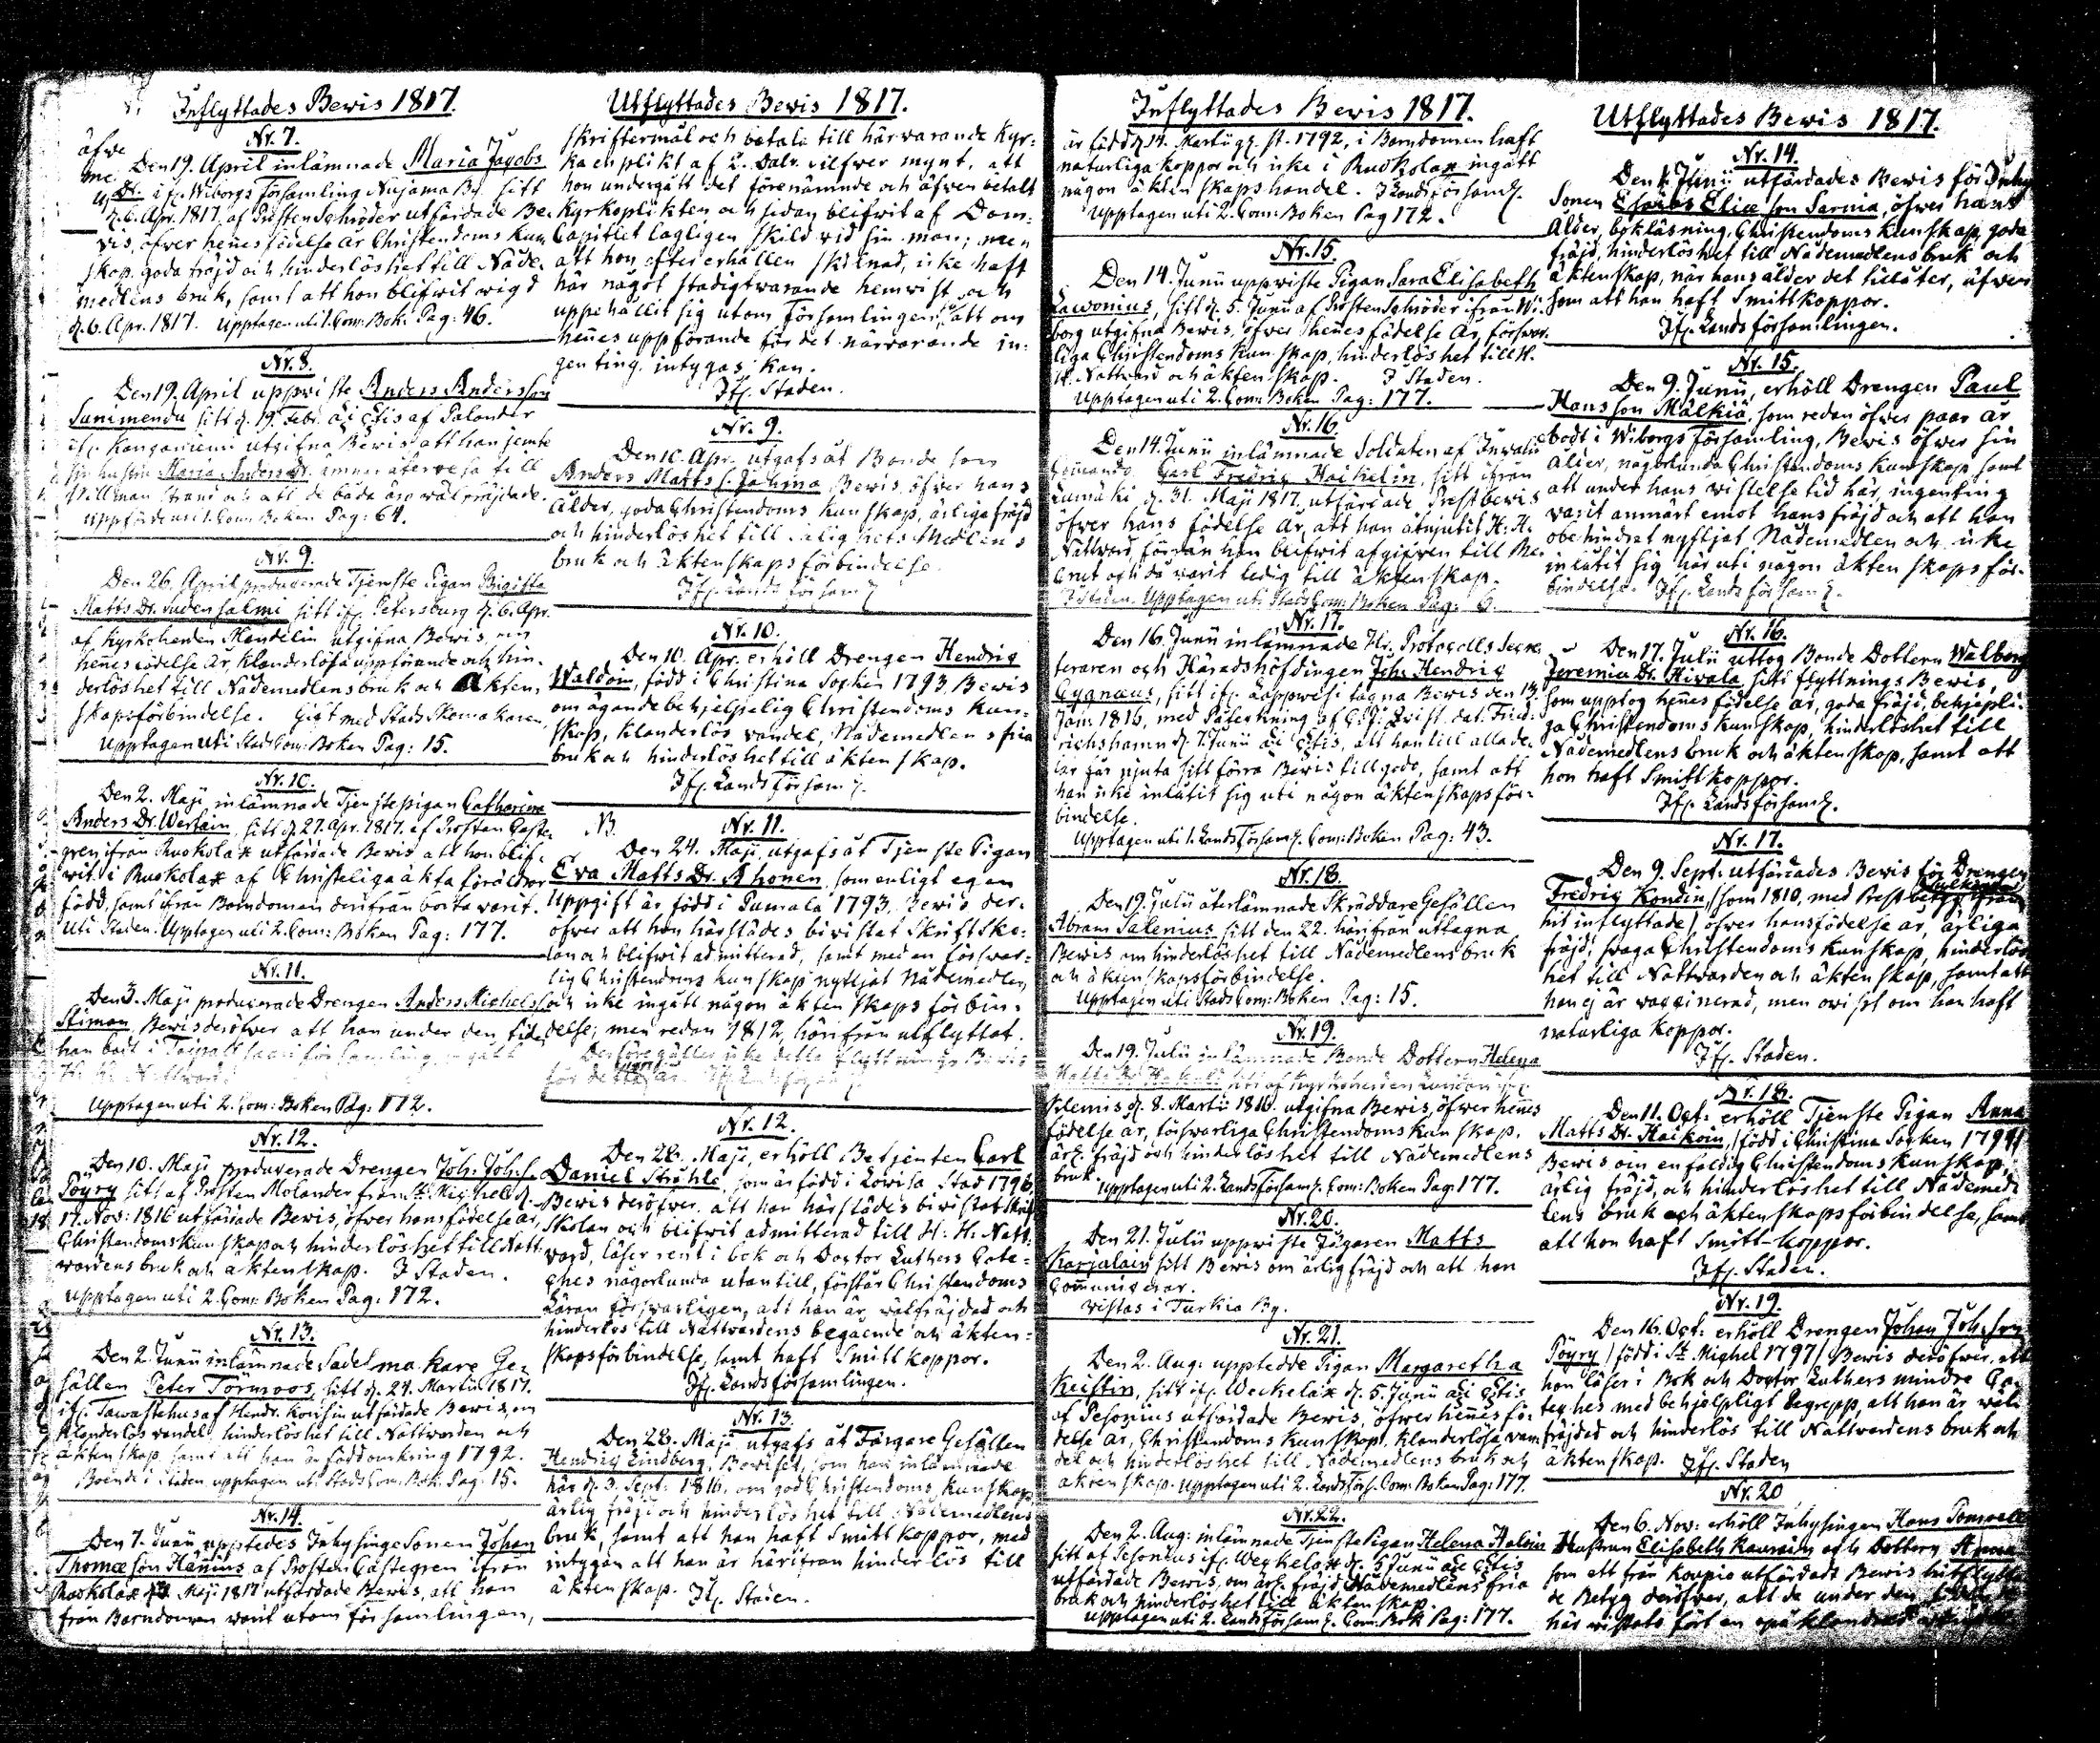 Inflyttades Bewis 1817.
Nr. 7.
Den 19. April inlämnade Maria Jacobs
Dr. ifr. Wiborgs Församling Nujama By. sitt
d. 6. Apr. 1817. af Prosten Schröder utfärdade Be-
wis, öfwer hennes födelse år Christendoms kun
skap, goda fräjd och hinderlöshet till Nåde-
medlens bruk, samt att hon blifwit wigd
d. 6. Apr. 1817. Upptagen uti 1. Com: Bok. Pag: 46.
Nr. 8.
Den 19. April uppwiste Anders Andersson
Sanimendu sitt d. 19. Febr. a: c: af Palander
ifr. Kangasniemi utgifna Bewis att han jemte
sin hustru Maria Anders Dr. ämnar återresa till
Willman strand och att de båda äro wälfräjdade.
Uppförde uti 1. Com: Boken Pag: 64.
Nr. 9.
Den 26. April producerade Tjenste Pigan Brigitta
Matts Dr. Sudensalmi sitt ifr. Petersburg d. 6. Apr.
af Kyrkoherden Handelin utgifna Bewis, om
hennes födelse år, klanderlösa uppförande och hin-
derlöshet till Nådemedlens bruk och äkten-
skapsförbindelse. Gift med Stads Skomakaren,
Upptagen uti Stads Com: Boken Pag: 15.
Nr. 10.
Den 2. Maji, inlämnade Tjenstepigan Catharina
Anders Dr. Wertain, sitt d. 27. Apr. 1817. af Prosten Caste-
gren ifrån Ruokolax utfärdade Bewis att hon blif-
wit i Ruokolax af Christeliga äkta föräldrar
född, samt ifrån Barndomen derifrån borta warit.
Uti Staden. Upptagen uti 2. Com: Boken Pag: 177.
Nr. 11.
Den 3. Maji producerade Drengen Anders Michels
Simon, Bewis deröfwer att han under den tid
han bodt i Taipalsaari församling
H. H. Nattward.
Upptagen uti 2. Com: Boken Pag: 172.
Nr. 12.
Den 10. Maji producerade Drengen Joh: Joh: s.
Pöyry sitt af Prosten Molander från St. Michel d.
17. Nov: 1816 utfärdade Bewis, öfwer hans födelse år,
Christendoms kunskap och hinderlöshet till Natt-
wardens bruk och äktenskap. I Staden.
Upptagen uti 2. Com: Boken Pag: 172.
Nr. 13.
Den 2. Junii inlämnade Sadelmakare Ge-
sällen Peter Törnroos, sitt d. 24. Martii 1817.
ifr. Tawastehus af Hendr. utfärdade Bewis, om
klanderlös wandel, hinderlöshet till Nattwarden och
äktenskap, samt att han är född omkring 1792.
Boende i Staden upptagen uti Stads Com: Bok. Pag. 15.
Nr. 14.
Den 7. Junii, upptedes Inhysinge Sonen Johan
Thomæ son Hännins af Prosten Castegren ifrån
Ruokolax Maji 1817 utfärdade Bewis, att han
från Barndomen warit utom församlingen,
Utflyttades Bewis 1817.
skriftermål och betala till härwarande Kyr-
ka en plikt af 2. Dalr. silfwer mynt, att
hon undergått det förenämnde och äfwen betalt
Kyrkoplikten och sedan blifwit af Dom-
Capitlet lagligen skild wid sin man; men
att hon efter erhållen skilnad, icke haft
här något stadigtwarande hemwist och
uppehållit sig utom Församlingen; att om
hennes uppförande för det närwarande in-
genting intygas kan.
Ifr. Staden.
Nr. 9.
Den 10. Apr. utgafs åt Bonde son
Anders Matts s. Jähina Bewis, öfwer hans
ålder, goda Christendoms kunskap, ärliga fräjd
och hinderlöshet till Salighets Medlens
bruk och äktenskapsförbindelse.
Ifr. Lands församl.
Nr. 10.
Den 10. Apr. erhöll Drengen Hendric
Waldom, född i Christina Socken 1793, Bewis
om ägande behjelpelig Christendoms kun-
skap, klanderlös wandel, Nådemedlens fria
bruk och hinderlöshet till äktenskap.
Ifr. Lands Församl.
NB. Nr. 11.
Den 24. Maji, utgafs åt Tjenste Pigan
Eva Matts Dr. Ahonen, som enligt egen
uppgift är född i Pumala 1793, Bewis der-
öfwer att hon härstädes biwistat Skriftsko-
lan och blifwit admitterad, samt med en förswar-
lig Christendoms kunskap nyttjat Nådemedlen
och icke ingått någon äktenskaps förbin-
delse; men redan 1812, härifrån utflyttat.
Derföre gäller icke detta Flyttnings Bewis
Nr. 12.
Den 28. Maji, erhöll Betjenten Carl
Daniel Stråhle, som är född i Lowisa Stad 1796,
Bewis deröfwer att han härstädes biwistat Skrift
Skolan och blifwit admitterad till H. H. Natt-
ward, läser rent i bok och Doctor Luthers Cate-
ches någorlunda utantill, förstår Christendoms
Läran förswarligen, att han är wälfräjdad och
hinderlös till Nattwardens begående och äkten-
skapsförbindelse, samt haft Smittkoppor.
Ifr. Landsförsamlingen.
Nr. 13.
Den 28. Maji utgafs åt Färgare Gesällen
Hendric Lindberg, Bewiset, som han inlämnade
här d. 3. Sept. 1816, om god Christendoms kunskap
ärlig fräjd och hinderlöshet till Nådemedlens
bruk, samt att han haft Smittkoppor, med
intygan att han är härifrån hinderlös till
äktenskap. Ifr. Staden.
Inflyttades Bewis 1817.
är född d. 14. Martii g. st. 1792, i Barndomen haft
naturliga koppor och icke i Ruokolax ingått
någon äktenskapshandel. I Landsförsaml.
Upptagen uti 2. Com: Boken Pag 172.
Nr. 15.
Den 14. Junii uppwiste Pigan Sara Elisabeth
Lawonius, sitt d. 5. Junii af Prosten Schröder ifrån Wi-
borg utgifna Bewis, öfwer hennes födelse år, förswar-
liga Christendoms kunskap, hinderlöshet till H.
H. Nattward och äktenskap. I Staden.
Upptagen uti 2. Com: Boken Pag: 177.
Nr. 16.
Den 14. Junii inlämnade Soldaten af Invalid
Comando Carl Fredric Haikelin, sitt ifrån
Lumäki d. 31. Maji 1817 utfärdade Prestbewis
öfwer hans födelse år, att han åtnjutit H. H.
Nattward, förrän han blifwit afgifwen till Re-
crut och då warit ledig till äktenskap.
I Staden. Upptagen uti Stads Com: Boken Pag: 6.
Nr. 17.
Den 16. Junii inlämnade Hr. Protocolls Secre-
teraren och Häradshöfdingen Joh. Hendric
Cygnæus, sitt ifr. Lappwesi tagna Bewis den 13.
Jan: 1816, med Påteckning af C. J. Qvist. dat. Fred-
richshamn d. 7. Junii a: c:, att han till alla de-
lar får njuta sitt förra Bewis till godo, samt att
han icke inlåtit sig uti någon äktenskapsför-
bindelse.
Upptagen uti 1. Lands Församl. Com: Boken Pag: 43.
Nr. 18.
Den 19. Julii återlämnade Skräddare Gesällen
Abram Salenius sitt den 22. härifrån uttagna
Bewis om hinderlöshet till Nådemedlens bruk
och äktenskapsförbindelse.
Upptagen uti Stads Com: Boken Pag: 15.
Nr. 19.
Den 19. Julii inlämnade Bonde Dottern Helena
Matts Dr. sitt af Kyrkoherden
Klemis d. 8. Martii 1816. utgifna Bewis, öfwer hennes
födelse år, förswarliga Christendoms kunskap,
ärl. fräjd och hinderlöshet till Nådemedlens
bruk. Upptagen uti 2. Lands Församl. Com: Boken Pag. 177.
Nr. 20.
Den 21. Julii uppwiste Jägaren Matts
Karjalain sitt Bewis om ärlig fräjd och att han
Communicerar.
wistas i Turkia By.
Nr. 21.
Den 2. Aug: upptedde Pigan Margaretha
Keistin, sitt ifr. Weckelax d. 5. Junii a: c:
af Pesonius utfärdade Bewis, öfwer hennes fö-
delse år, Christendoms kunskap, klanderlösa wan-
del och hinderlöshet till Nådemedlens bruk och
äktenskap. Upptagen uti 2. Lands Förs. Com: Boken Pag: 177.
Nr. 22.
Den 2. Aug: inlämnade Tjenste Pigan Helena Haloin
sitt af Pesonius ifr. Weckelax d. 5. Junii a: c:
utfärdade Bewis, om ärl. fräjd Nådemedlens fria
bruk och hinderlöshet till äktenskap.
Upptagen uti 2. Landsförsaml. Com: Bok Pag: 177.
Utflyttades Bewis 1817.
Nr. 14.
Den Junii utfärdades Bewis för Inhys
Sonen Esaias Eliæ son Sarma, öfwer hans
ålder, bokläsning, Christendoms kunskap, goda
fräjd, hinderlöshet till Nådemedlens bruk och
äktenskap, när hans ålder det tillåter, äfwen
som att han haft Smittkoppor.
Ifr. Landsförsamlingen.
Nr. 15.
Den 9. Junii, erhöll Drengen Paul
Hansson Mälkiä, som redan öfwer paar år
bodt i Wiborgs Församling, Bewis öfwer sin
ålder, någorlunda Christendoms kunskap samt
att under hans wistelse tid här, ingenting
warit anmärt emot hans fräjd och att han
obehindrat nyttjat Nådemedlen och icke
inlåtit sig här uti någon äktenskapsför-
bindelse. Ifr. Landsförsaml.
Nr. 16.
Den 17. Julii uttog Bonde Dottern Walborg
Jeremiæ Dr. Hivala sitt flyttnings Bewis,
som upptog hennes födelse år, goda fräjd, behjelpli-
ga Christendoms kunskap, hinderlöshet till
Nådemedlens bruk och äktenskap, samt att
hon haft Smittkoppor.
Ifr. Landsförsaml.
Nr. 17.
Den 9. Sept. utfärdades Bewis för Drengen
Fredric Kondin, / som 1810, med Prestbetyg ifrån
hit inflyttade / öfwer hans födelse år, ärliga
fräjd, swaga Christendoms kunskap, hinderlös
het till Nattwarden och äktenskap, samt att
han ej är waccinerad, men owisst om han haft
naturliga koppor.
Ifr. Staden.
Nr. 18.
Den 11. Oct: erhöll Tjenste Pigan Anna
Matts Dr. Haikoin, / född i Christina Socken 1794 /
Bewis om enfaldig Christendoms kunskap,
ärlig fräjd, och hinderlöshet till Nådemed-
lens bruk och äktenskapsförbindelse, samt
att hon haft Smitt-koppor.
Ifr. Staden.
Nr. 19.
Den 16. Oct: erhöll Drengen Johan Joh. son
Pöyry / född i St. Michel 1797 / Bewis deröfwer, att
han läser i Bok och Doctor Luthers mindre Ca-
teches med behjelpligt begrepp, att han är wäl-
fräjdad och hinderlös till Nattwardens bruk och
äktenskap. Ifr. Staden
Nr. 20
Den 6. Nov: erhöll Inhysingen Hans
Hustrun Elisabeth Kauvain och Dottern Anna
som ett från Koupio utfärdadt Bewis hitflytta-
de Betyg deröfwer, att de under den
här wistats fört en opåklandrad